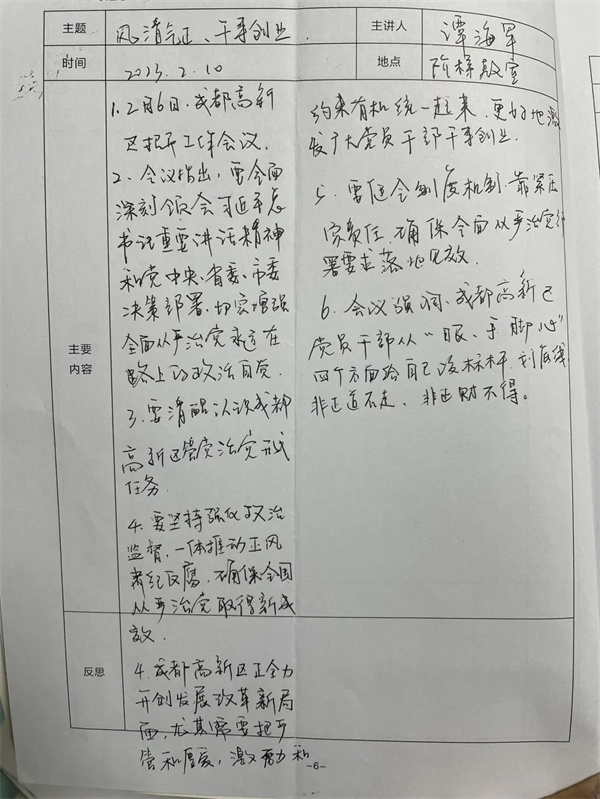 主题 风清气正、干事创业. 主讲人 谭海军
时间 2023.2.10 地点 阶梯教室
主要
内容
1.2月6日.成都高新
区召开工作会议.
2、会议指出,要全面
深刻领会习近平总
书记重要讲话精神
和党中央、省委、市委
决策部署.切实增强
全面从严治党永远在
路上的政治自觉.
3.要清醒认识成都
高新区管党治党形式
任务.
4.要坚持强化政治
监督.一体推动正风
肃纪反腐.确保全面
从严治党取得新成
效.
反思
4.成都高新区正全力
开创发展改革新局
面,尤其需要把严
管和厚爱,激励和
约束有机统一起来.更好地激
发广大党员干部干事创业.
5.要健全制度机制.靠紧压
实责任.确保全面从严治党部
署要求落地见效.
6.会议强调、成都高新区
党员干部从“眼、手、脚、心”
四个方面给自己设标杆.划底线
非正道不走、非正财不得。
-6-